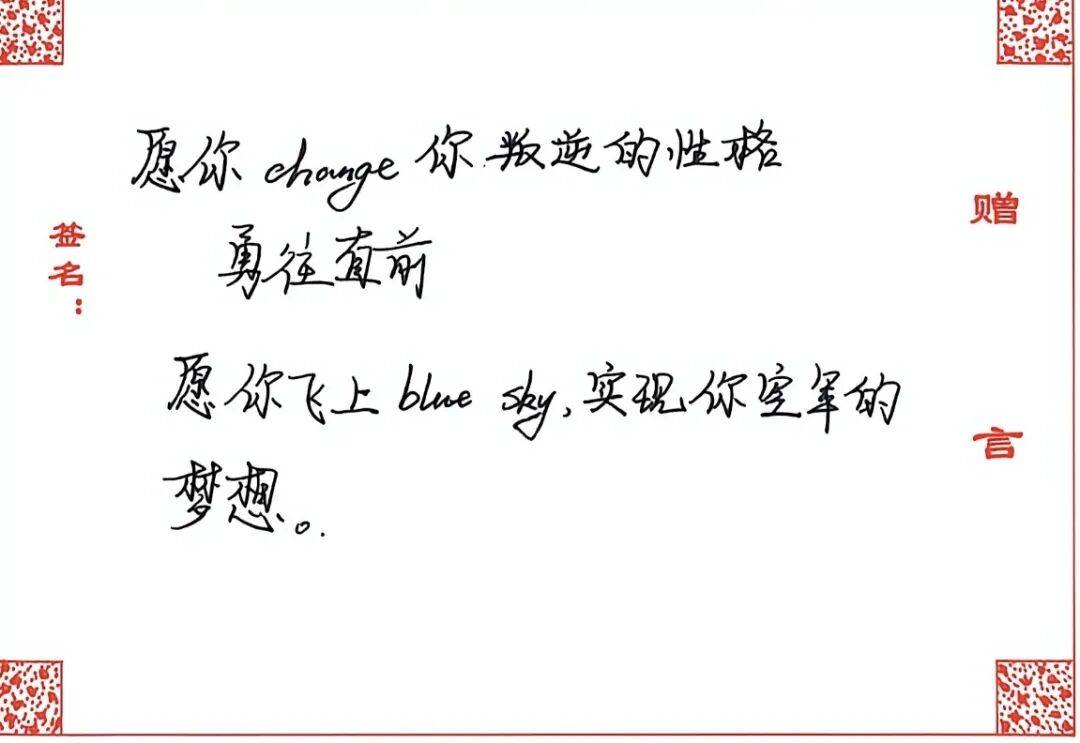 愿你change你叛逆的性格
勇往直前
愿你飞上blue sky,实现你空军的
梦想。
赠言
签名：